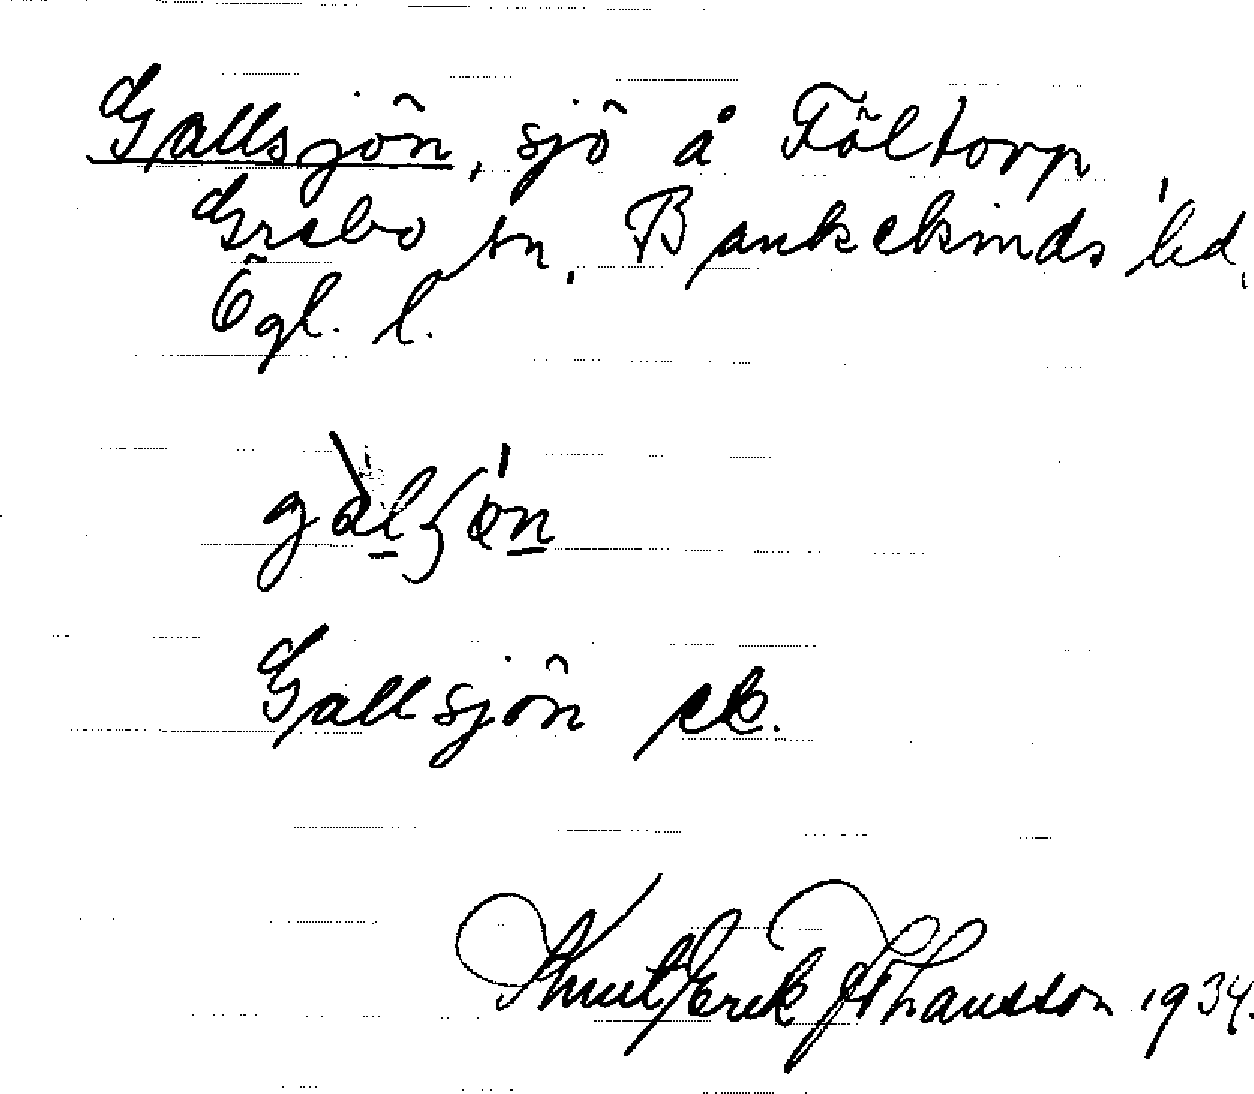 Gallsjön, sjö å Föltorp
Grebo sn. Bankekinds hd.
Ögl. l.
Gallsjön ek.
Knut Erik Johansson 1934.